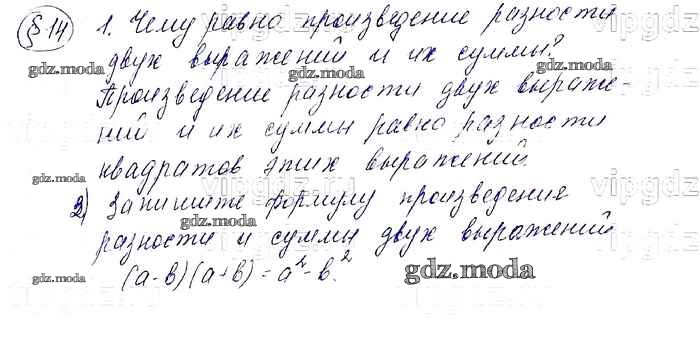 § 14 1. Чему равно произведение разности
двух выражений и их суммы?
Произведение разности двух выраже-
ний и их суммы равно разности
квадратов этих выражений.
2) Запишите формулу произведения
разности и суммы двух выражений
(а-в)(а+в) = а²-в².
gdz.moda
gdz.moda
gdz.moda
gdz.moda
gdz.moda
gdz.moda
gdz.moda
vipgdz
vipgdz
vipgdz.ru
vipgdz
vipgdz